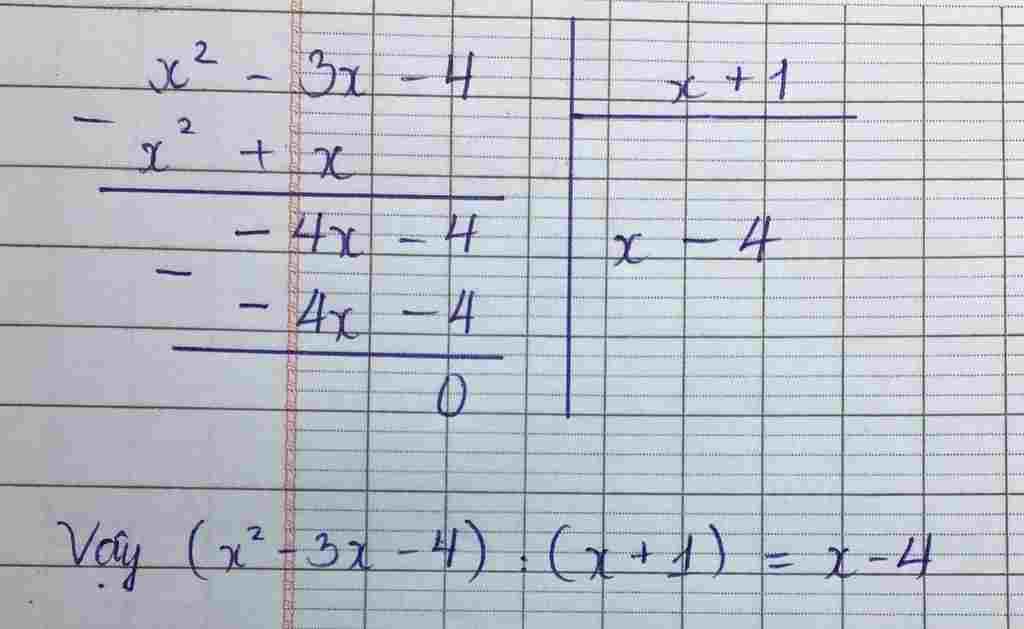 x² - 3x - 4 | x + 1
-
x² + x
- 4x - 4 | x - 4
-
- 4x - 4
0
Vậy (x² - 3x - 4) : (x + 1) = x - 4